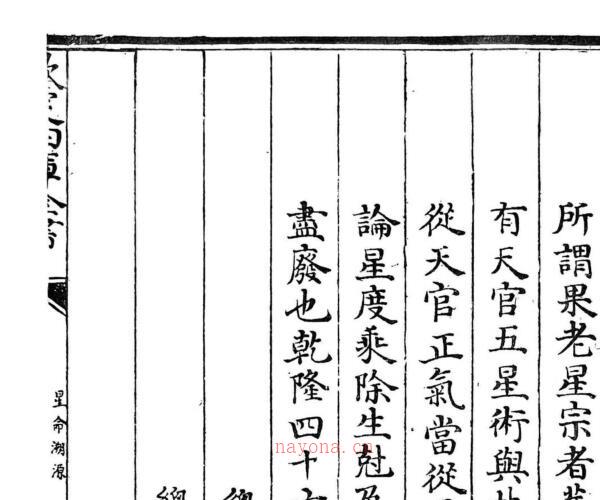 所謂果老星宗者
有天官五星術與
從天官正氣當從
論星度乘除生尅及
盡廢也乾隆四十六
總
總
欽定四庫全書
星命溯源
nayona.cn